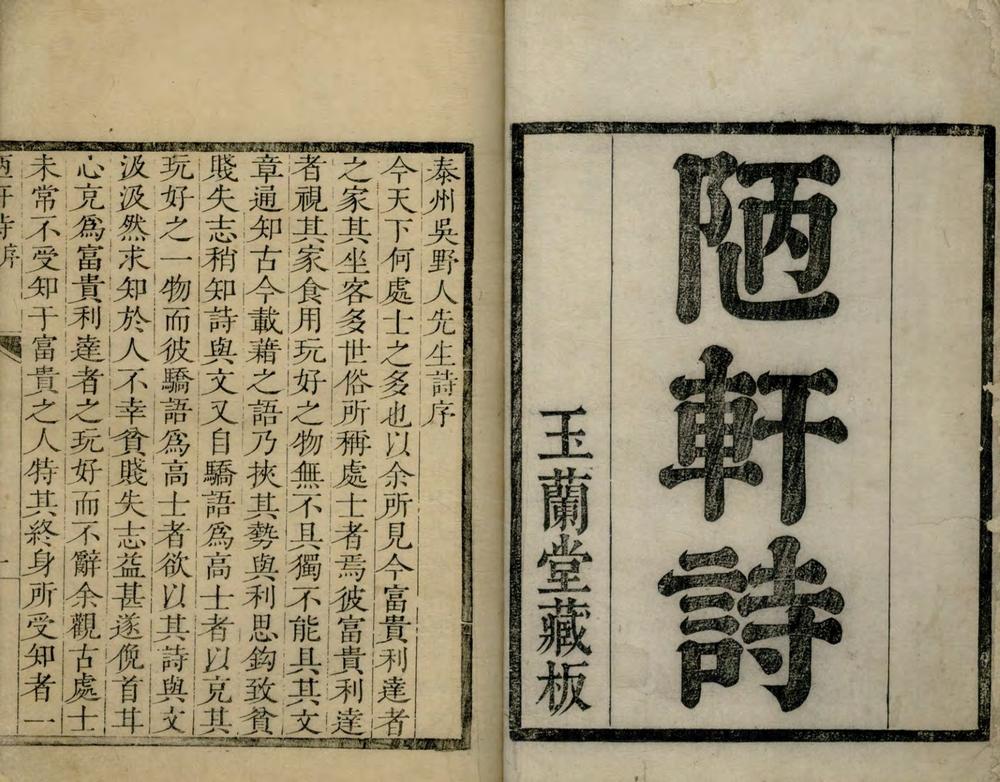 陋軒詩
玉蘭堂藏板
泰州吳野人先生詩序
今天下何處士之多也以余所見今富貴利達者
之家其坐客多世俗所稱處士者焉彼富貴利達
者視其家食用玩好之物無不具獨不能具其文
章通知古今載藉之語乃挾其勢與利思鈎致貧
賤失志稍知詩與文又自驕語爲高士者以克其
玩好之一物而彼驕語爲高士者欲以其詩與文
汲汲然求知於人不幸貧賤失志益甚遂俛首耳
心克爲富貴利達者之玩好而不辭余觀古處士
未常不受知于富貴之人特其終身所受知者一
陋軒詩序
一